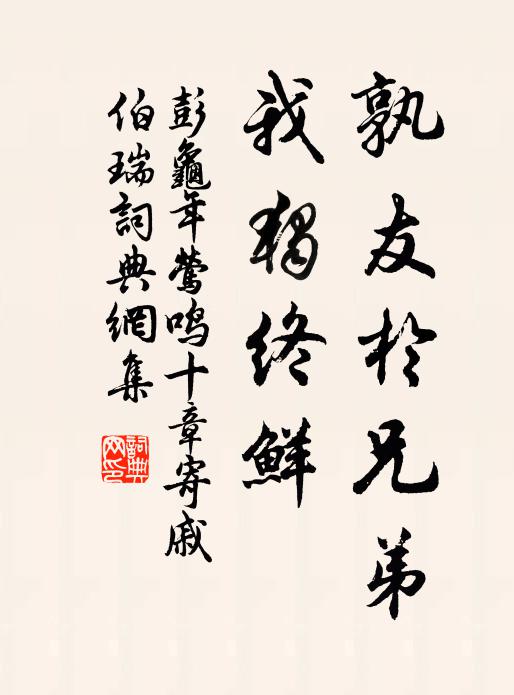 孰友於兄弟
我独终鲜
彭龜年鶯鳴十章寄戚
伯瑞詞典網集
詞典网印